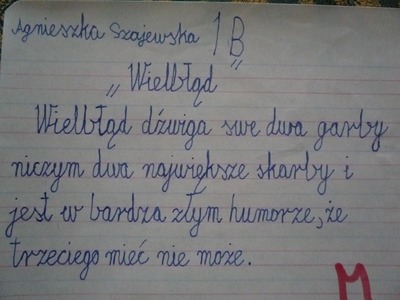 Agnieszka Szajewska 1B
„Wielbłąd"
Wielbłąd dźwiga swe dwa garby
niczym dwa największe skarby i
jest w bardza złym humorze, że
trzeciego mieć nie może.
M